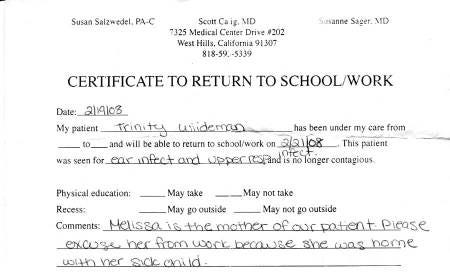 Susan Salzwedel, PA-C Scott Ca ig, MD Susanne Sager, MD
7325 Medical Center Drive #202
West Hills, California 91307
818-59 -5339
CERTIFICATE TO RETURN TO SCHOOL/WORK
Date: 2/19/08
My patient Trinity has been under my care from
to and will be able to return to school/work on 2/21/08. This patient
was seen for ear infect and upper resp infect. and is no longer contagious.
Physical education: May take May not take
Recess: May go outside May not go outside
Comments: Melissa is the mother of our patient. Please
excuse her from work because she was home
with her sick child.